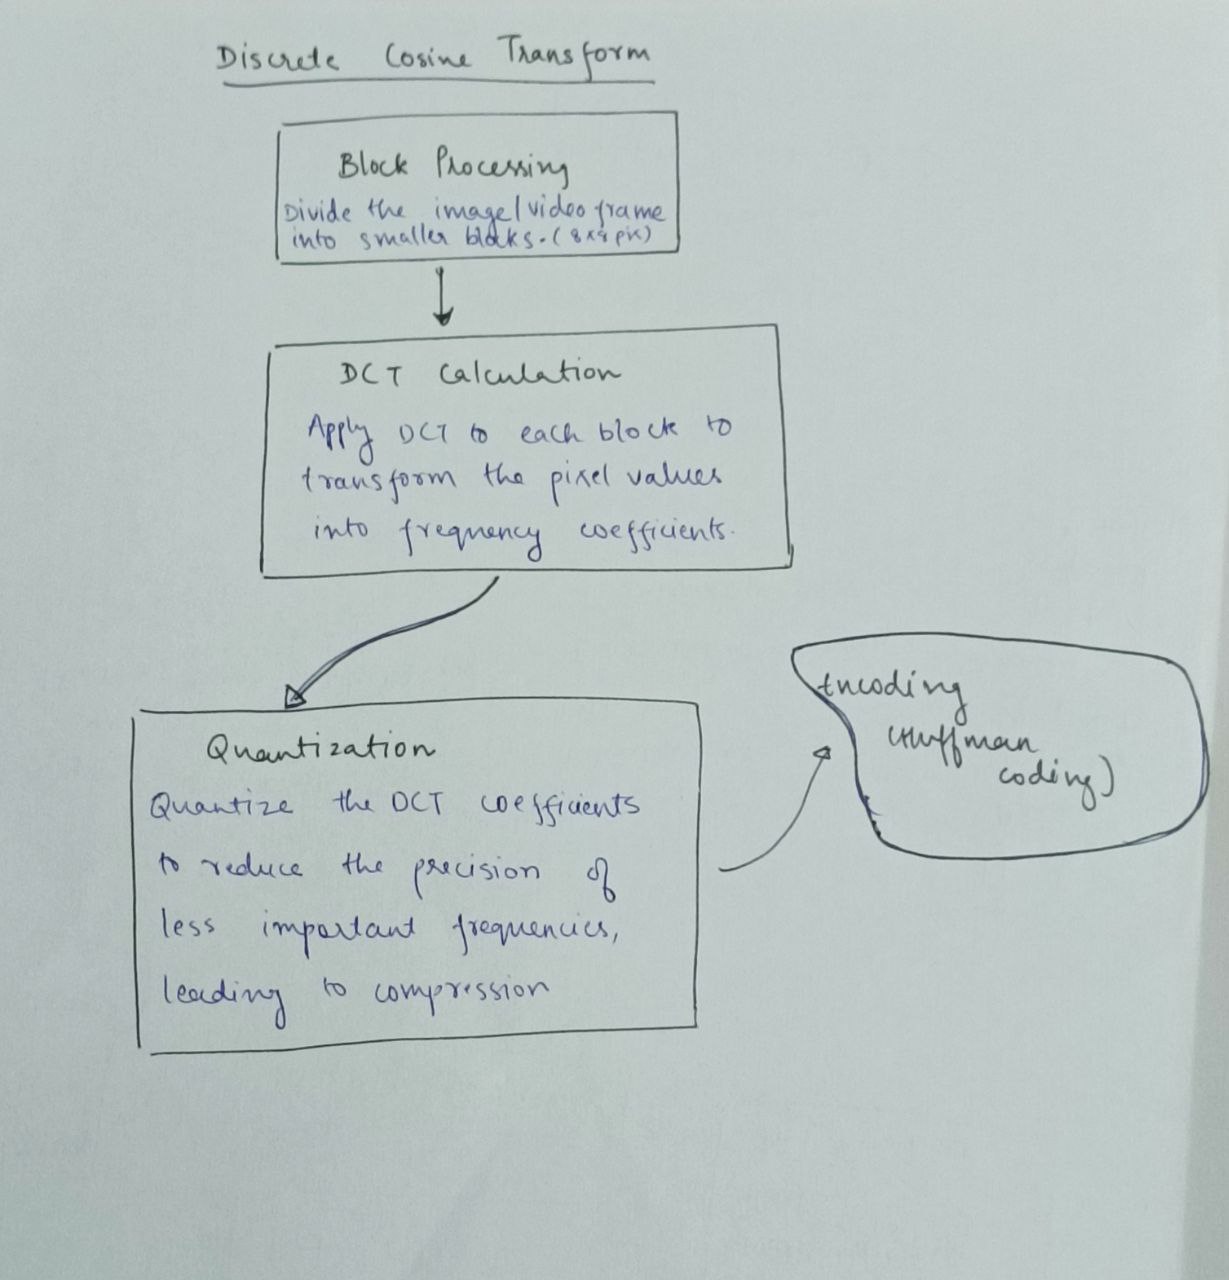 Discrete Cosine Transform
Block Processing
Divide the image/video frame
into smaller blocks. (8x8 pix)
DCT Calculation
Apply DCT to each block to
transform the pixel values
into frequency coefficients.
Quantization
Quantize the DCT coefficients
to reduce the precision of
less important frequencies,
leading to compression
Encoding
(Huffman
coding)